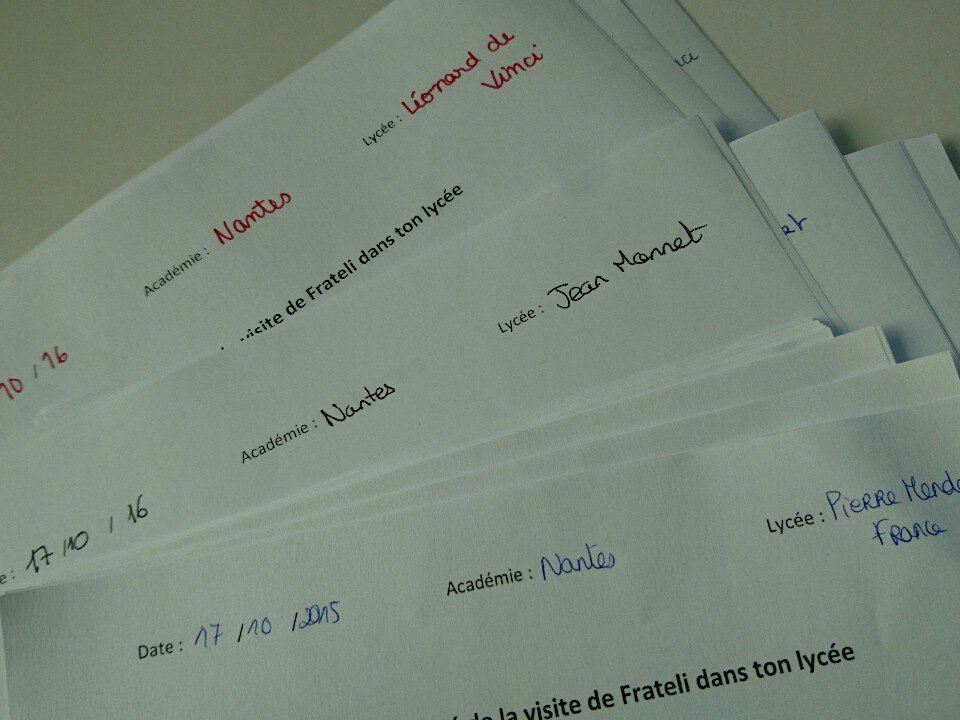 Lycée : Léonard de
Vinci
Académie : Nantes
10 / 16
visite de Frateli dans ton lycée
Lycée : Jean Monnet
Académie : Nantes
e : 17 / 10 / 16
Lycée : Pierre Mendè
France
Académie : Nantes
Date : 17 / 10 / 2015
é de la visite de Frateli dans ton lycée